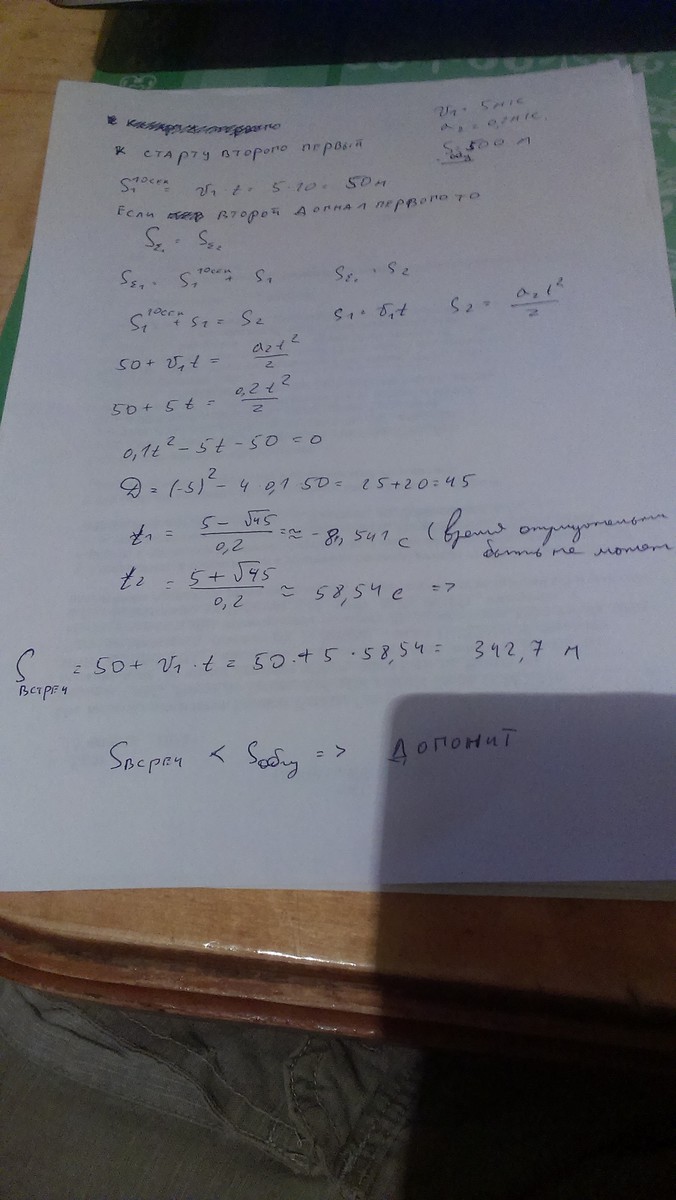 V₁ = 5 м/с
a₂ = 0,2 м/с
S общ 500 м
К СТАРТУ ВТОРОГО ПЕРВЫЙ
S₁¹⁰ᶜᵉᵏ = V₁ · t = 5 · 10 = 50 м
ЕСЛИ ВТОРОЙ ДОГНАЛ ПЕРВОГО ТО
S_Σ₁ = S_Σ₂
S_Σ₁ = S₁¹⁰ᶜᵉᵏ + S₁ S_Σ₂ = S₂
S₁¹⁰ᶜᵉᵏ + S₁ = S₂ S₁ = V₁t S₂ = a₂t²/2
50 + V₁t = a₂t²/2
50 + 5t = 0,2t²/2
0,1t² - 5t - 50 = 0
D = (-5)² - 4 · 0,1 · 50 = 25 + 20 = 45
t₁ = (5 - √45)/0,2 = ≈ -8,541 с (время отрицательн
быть не может
t₂ = (5 + √45)/0,2 ≈ 58,54 с =>
S встреч = 50 + V₁ · t = 50 + 5 · 58,54 = 342,7 м
S встреч < S общ => ДОГОНИТ